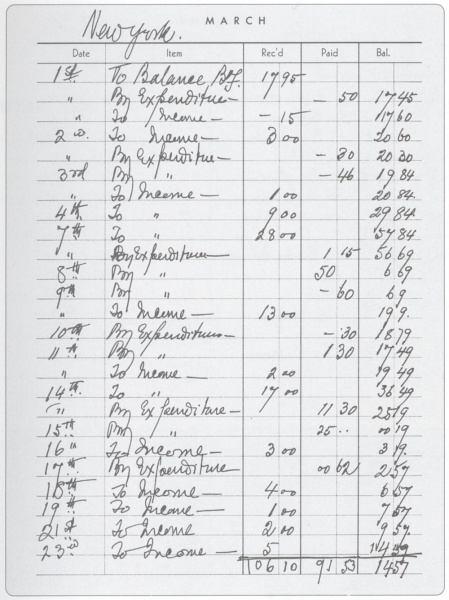 MARCH
New York.
Date Item Rec'd Paid Bal.
1st To Balance B/f. 17 95
" By Expenditure — 50 17 45
" To Income — — 15 17 60
2nd To Income — 3 00 20 60
" By Expenditure — — 30 20 30
3rd By " — 46 19 84
" To Income — 1 00 20 84
4th To " 9 00 29 84
7th To " 28 00 57 84
" By Expenditure 1 15 56 69
8th By " 50 6 69
9th By " — 60 6 9
" To Income — 13 00 19 9.
10th By Expenditure — — 30 18 79
11th By " 1 30 17 49
" To Income — 2 00 19 49
14th To " 17 00 36 49
" By Expenditure — 11 30 25 19
15th By " 25 .. 00 19.
16 " To Income — 3 00 3 19.
17th By Expenditure 00 62 2 57
18th To Income — 4 00 6 57
19th To Income — 1 00 7 57
21st To Income 2 00 9 57.
23rd To Income — 5
10 6 10 91 53 14 57